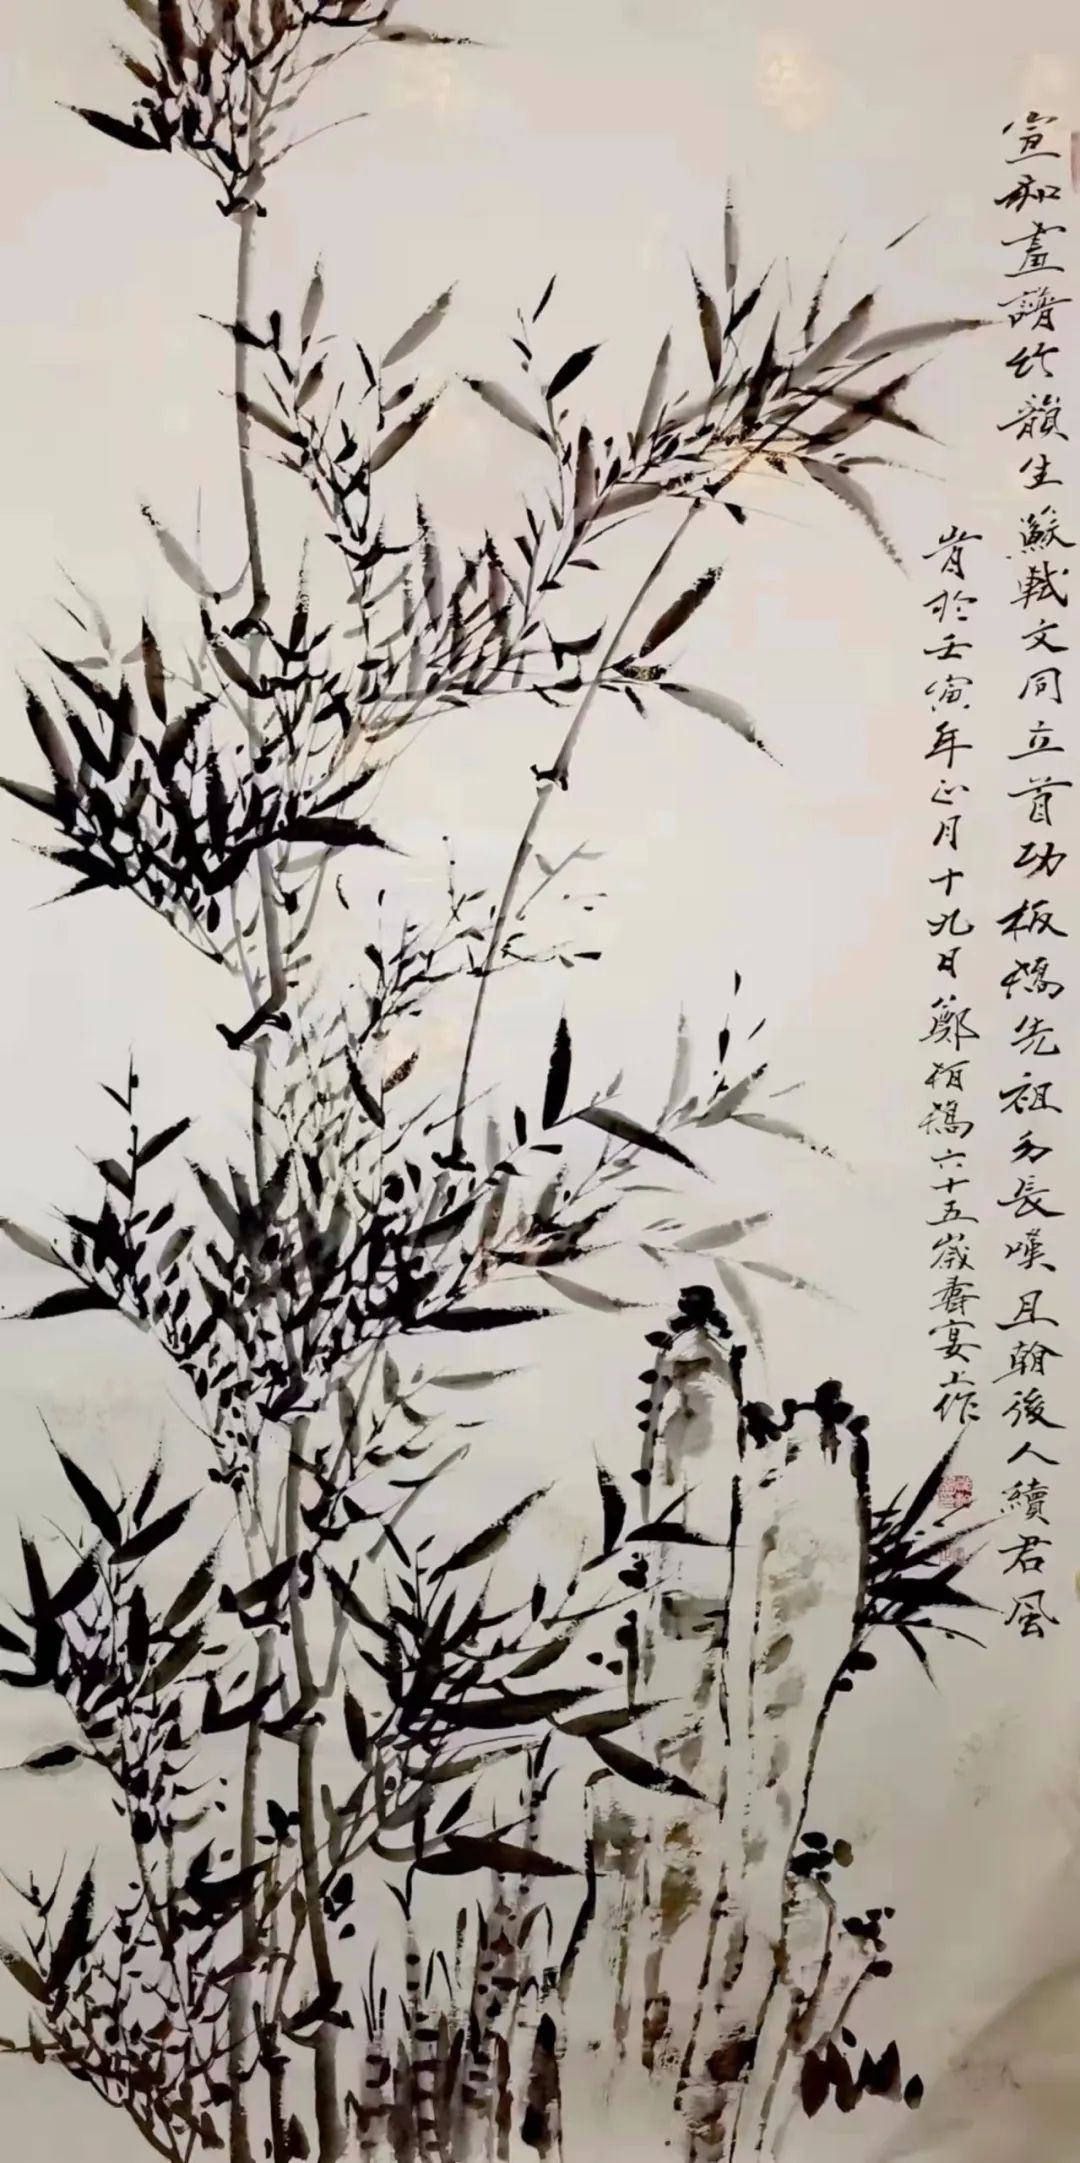 宣和畫譜竹韻生蘇軾文同立首功板橋先祖為長嘆且翰後人續君風
時於壬寅年正月十九日鄭栢橋六十五歲壽宴上作